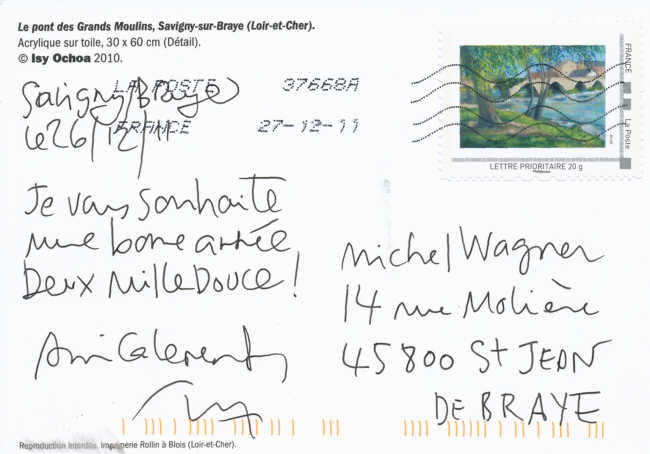 Le pont des Grands Moulins, Savigny-sur-Braye (Loir-et-Cher).
Acrylique sur toile, 30 x 60 cm (Détail).
© Isy Ochoa 2010.
LA POSTE 37668A
FRANCE 27-12-11
FRANCE
La Poste
LETTRE PRIORITAIRE 20 g
Savigny/Braye
le 26/12/11
Je vous souhaite
une bone année
Deux Mille Douce !
Amicalement
Michel Wagner
14 rue Molière
45800 St JEAN
DE BRAYE
Reproduction Interdite. Imprimerie Rollin à Blois (Loir-et-Cher).